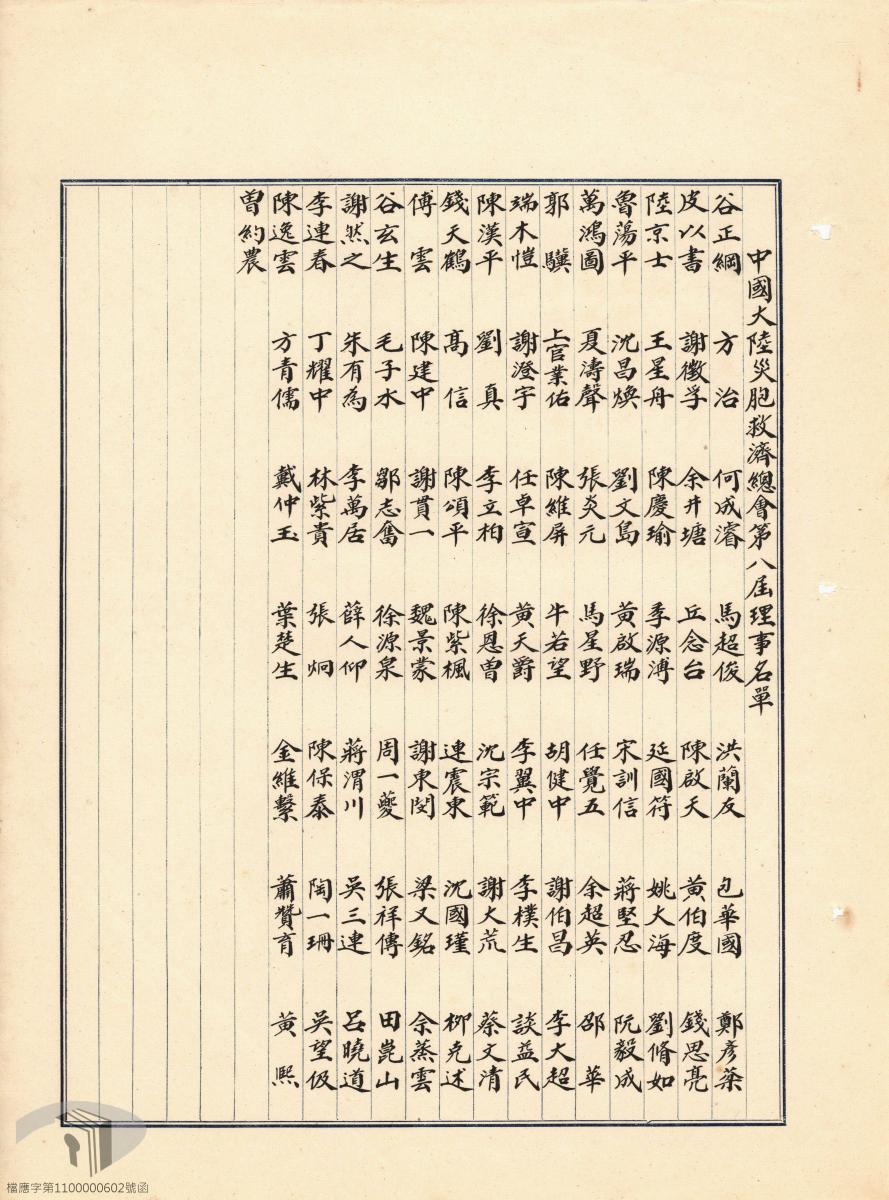 中國大陸災胞救濟總會第八屆理事名單
谷正綱 方治 何成濬 馬超俊 洪蘭友 包華國 鄭彥棻
皮以書 謝徵孚 余井塘 丘念台 陳啟天 黃伯度 錢思亮
陸京士 王星舟 陳慶瑜 季源溥 延國符 姚大海 劉脩如
魯蕩平 沈昌煥 劉文島 黃啟瑞 宋訓信 蔣堅忍 阮毅成
萬鴻圖 夏濤聲 張炎元 馬星野 任覺五 余超英 邵華
郭驥 上官業佑 陳維屏 牛若望 胡健中 謝伯昌 李大超
端木愷 謝澄宇 任卓宣 黃天爵 李翼中 李樸生 談益民
陳漢平 劉真 李立柏 徐恩曾 沈宗範 謝大荒 蔡文清
錢天鶴 高信 陳頌平 陳紫楓 連震東 沈國瑾 柳克述
傅雲 陳建中 謝貫一 魏景蒙 謝東閔 梁又銘 余蒸雲
谷玄生 毛子水 鄒志奮 徐源泉 周一夔 張祥傳 田崑山
謝然之 朱有為 李萬居 薛人仰 蔣渭川 吳三連 呂曉道
李連春 丁耀中 林紫貴 張炯 陳保泰 陶一珊 吳望伋
陳逸雲 方青儒 戴仲玉 葉楚生 金維繫 蕭贊育 黃熙
曾約農
檔應字第1100000602號函